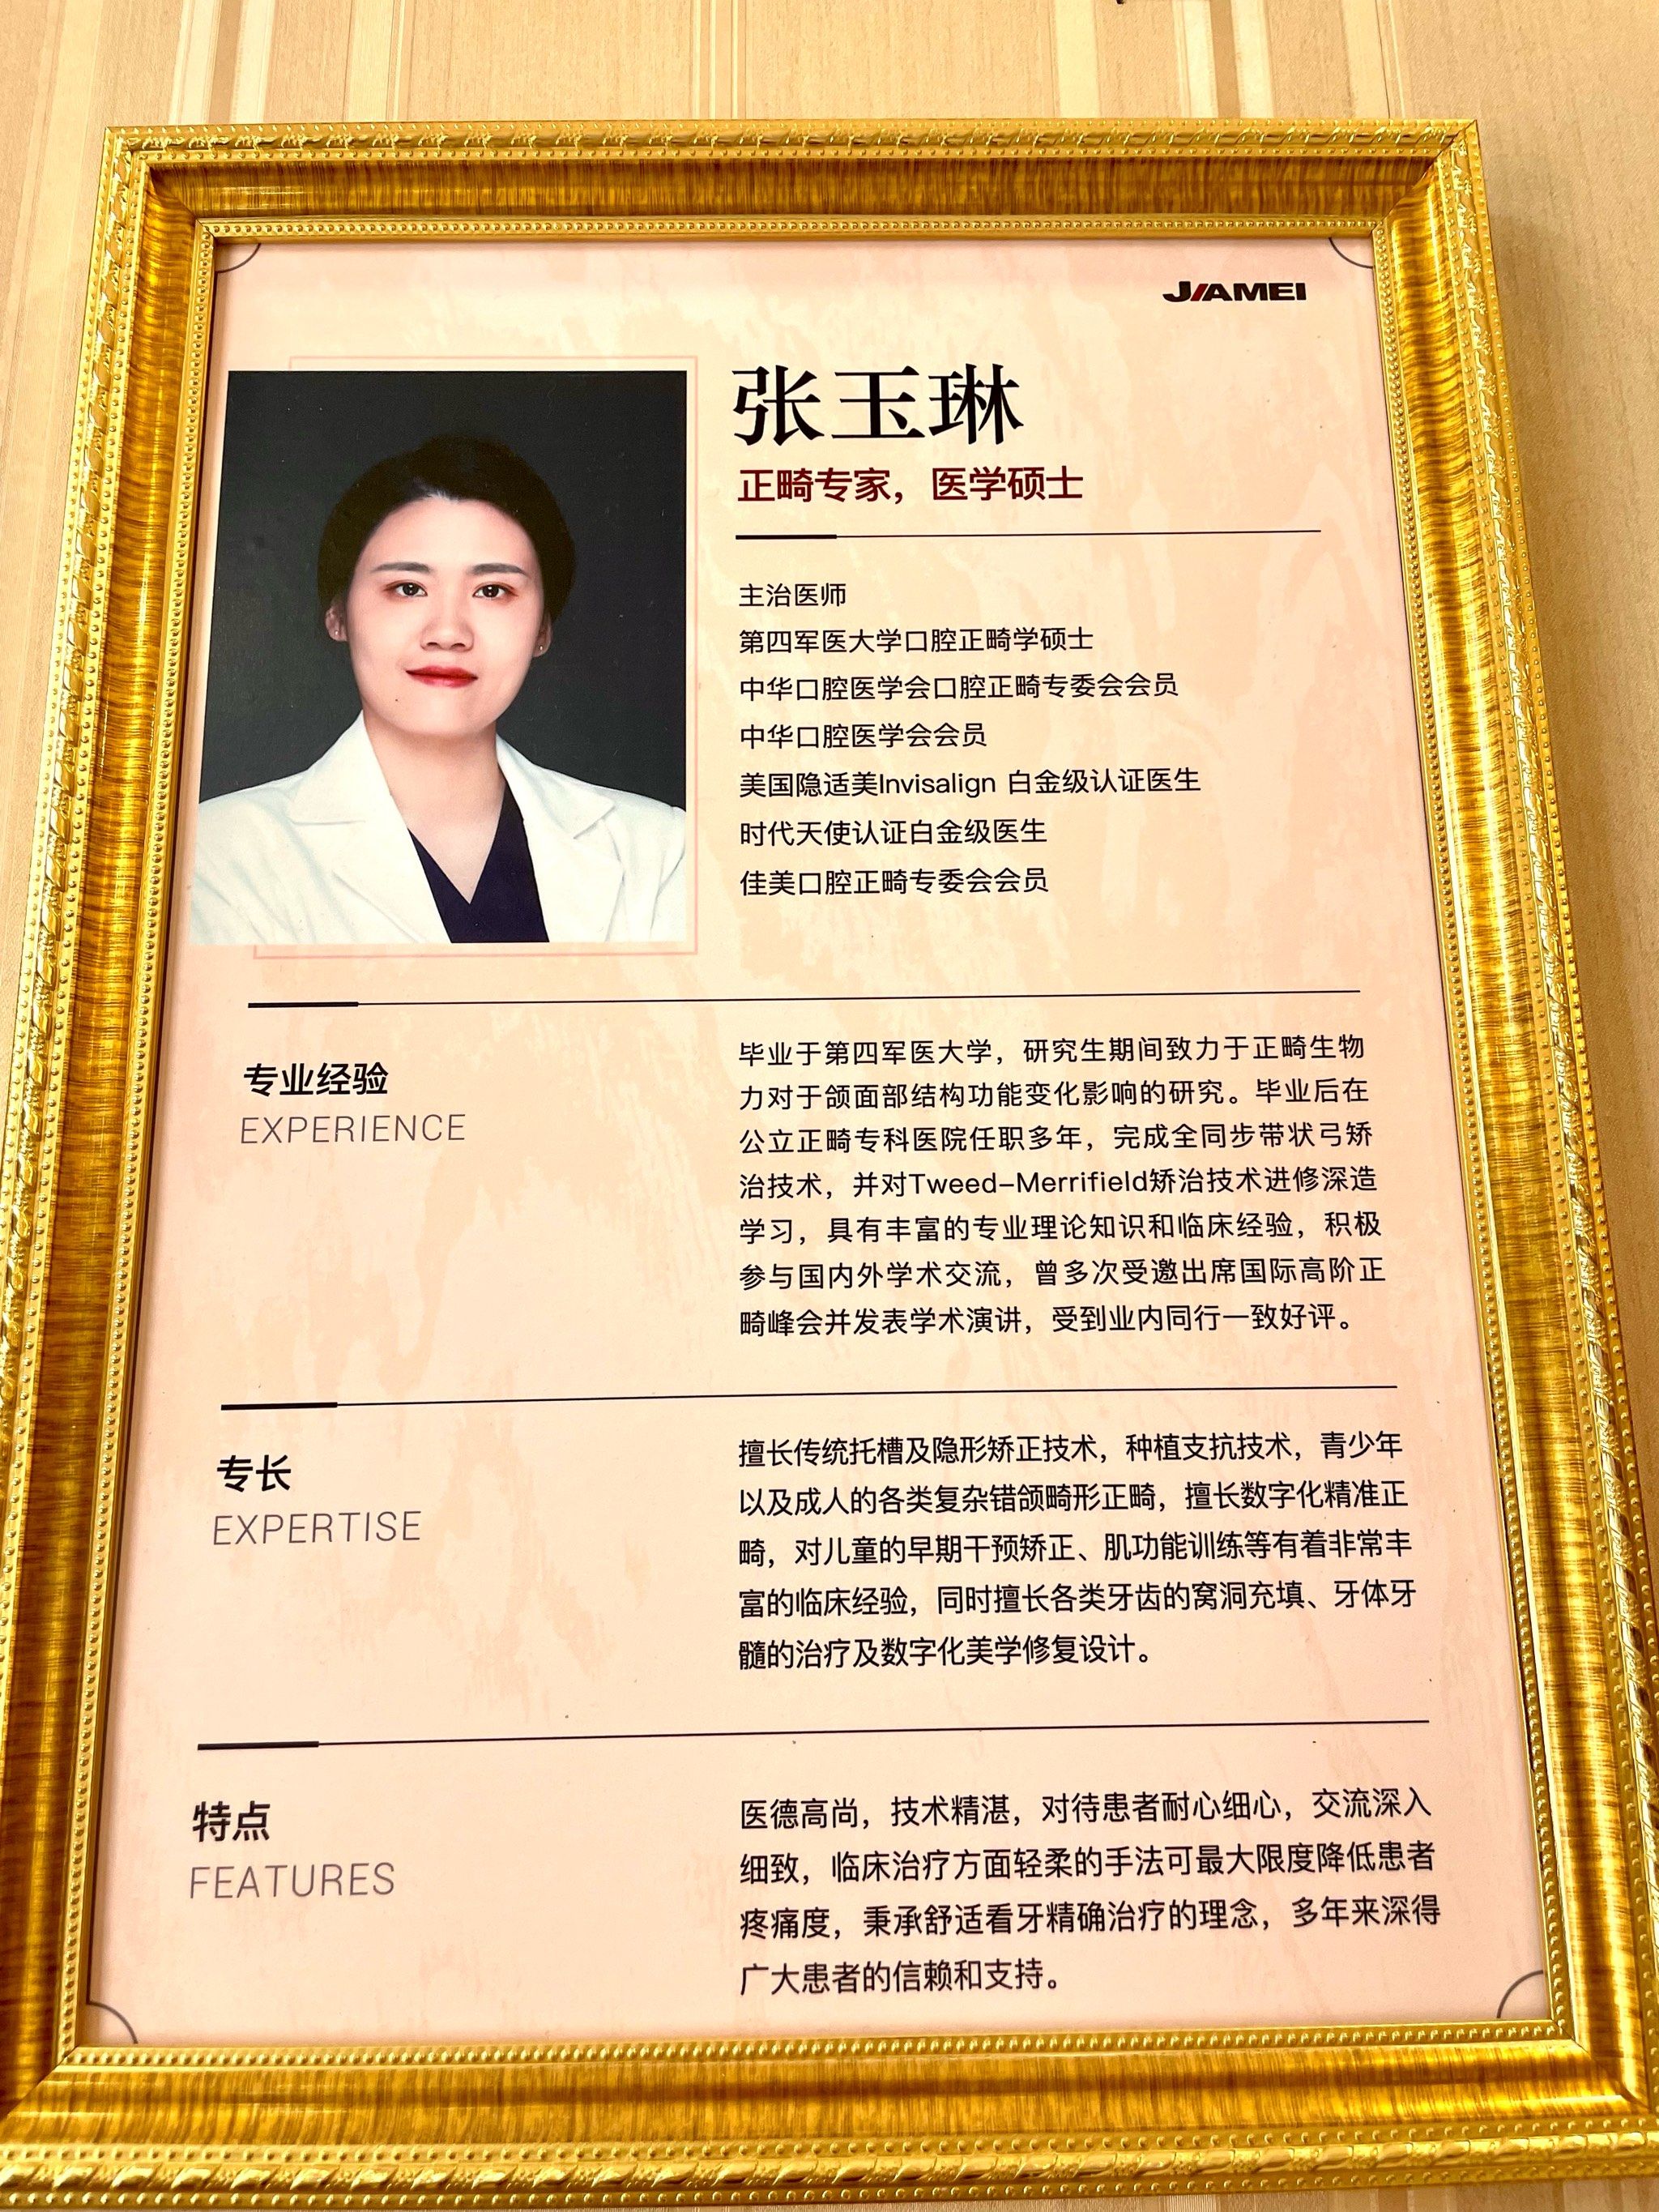 JIAMEI
张玉琳
正畸专家，医学硕士
主治医师
第四军医大学口腔正畸学硕士
中华口腔医学会口腔正畸专委会会员
中华口腔医学会会员
美国隐适美Invisalign 白金级认证医生
时代天使认证白金级医生
佳美口腔正畸专委会会员
专业经验
EXPERIENCE
毕业于第四军医大学，研究生期间致力于正畸生物
力对于颌面部结构功能变化影响的研究。毕业后在
公立正畸专科医院任职多年，完成全同步带状弓矫
治技术，并对Tweed-Merrifield矫治技术进修深造
学习，具有丰富的专业理论知识和临床经验，积极
参与国内外学术交流，曾多次受邀出席国际高阶正
畸峰会并发表学术演讲，受到业内同行一致好评。
专长
EXPERTISE
擅长传统托槽及隐形矫正技术，种植支抗技术，青少年
以及成人的各类复杂错颌畸形正畸，擅长数字化精准正
畸，对儿童的早期干预矫正、肌功能训练等有着非常丰
富的临床经验，同时擅长各类牙齿的窝洞充填、牙体牙
髓的治疗及数字化美学修复设计。
特点
FEATURES
医德高尚，技术精湛，对待患者耐心细心，交流深入
细致，临床治疗方面轻柔的手法可最大限度降低患者
疼痛度，秉承舒适看牙精确治疗的理念，多年来深得
广大患者的信赖和支持。